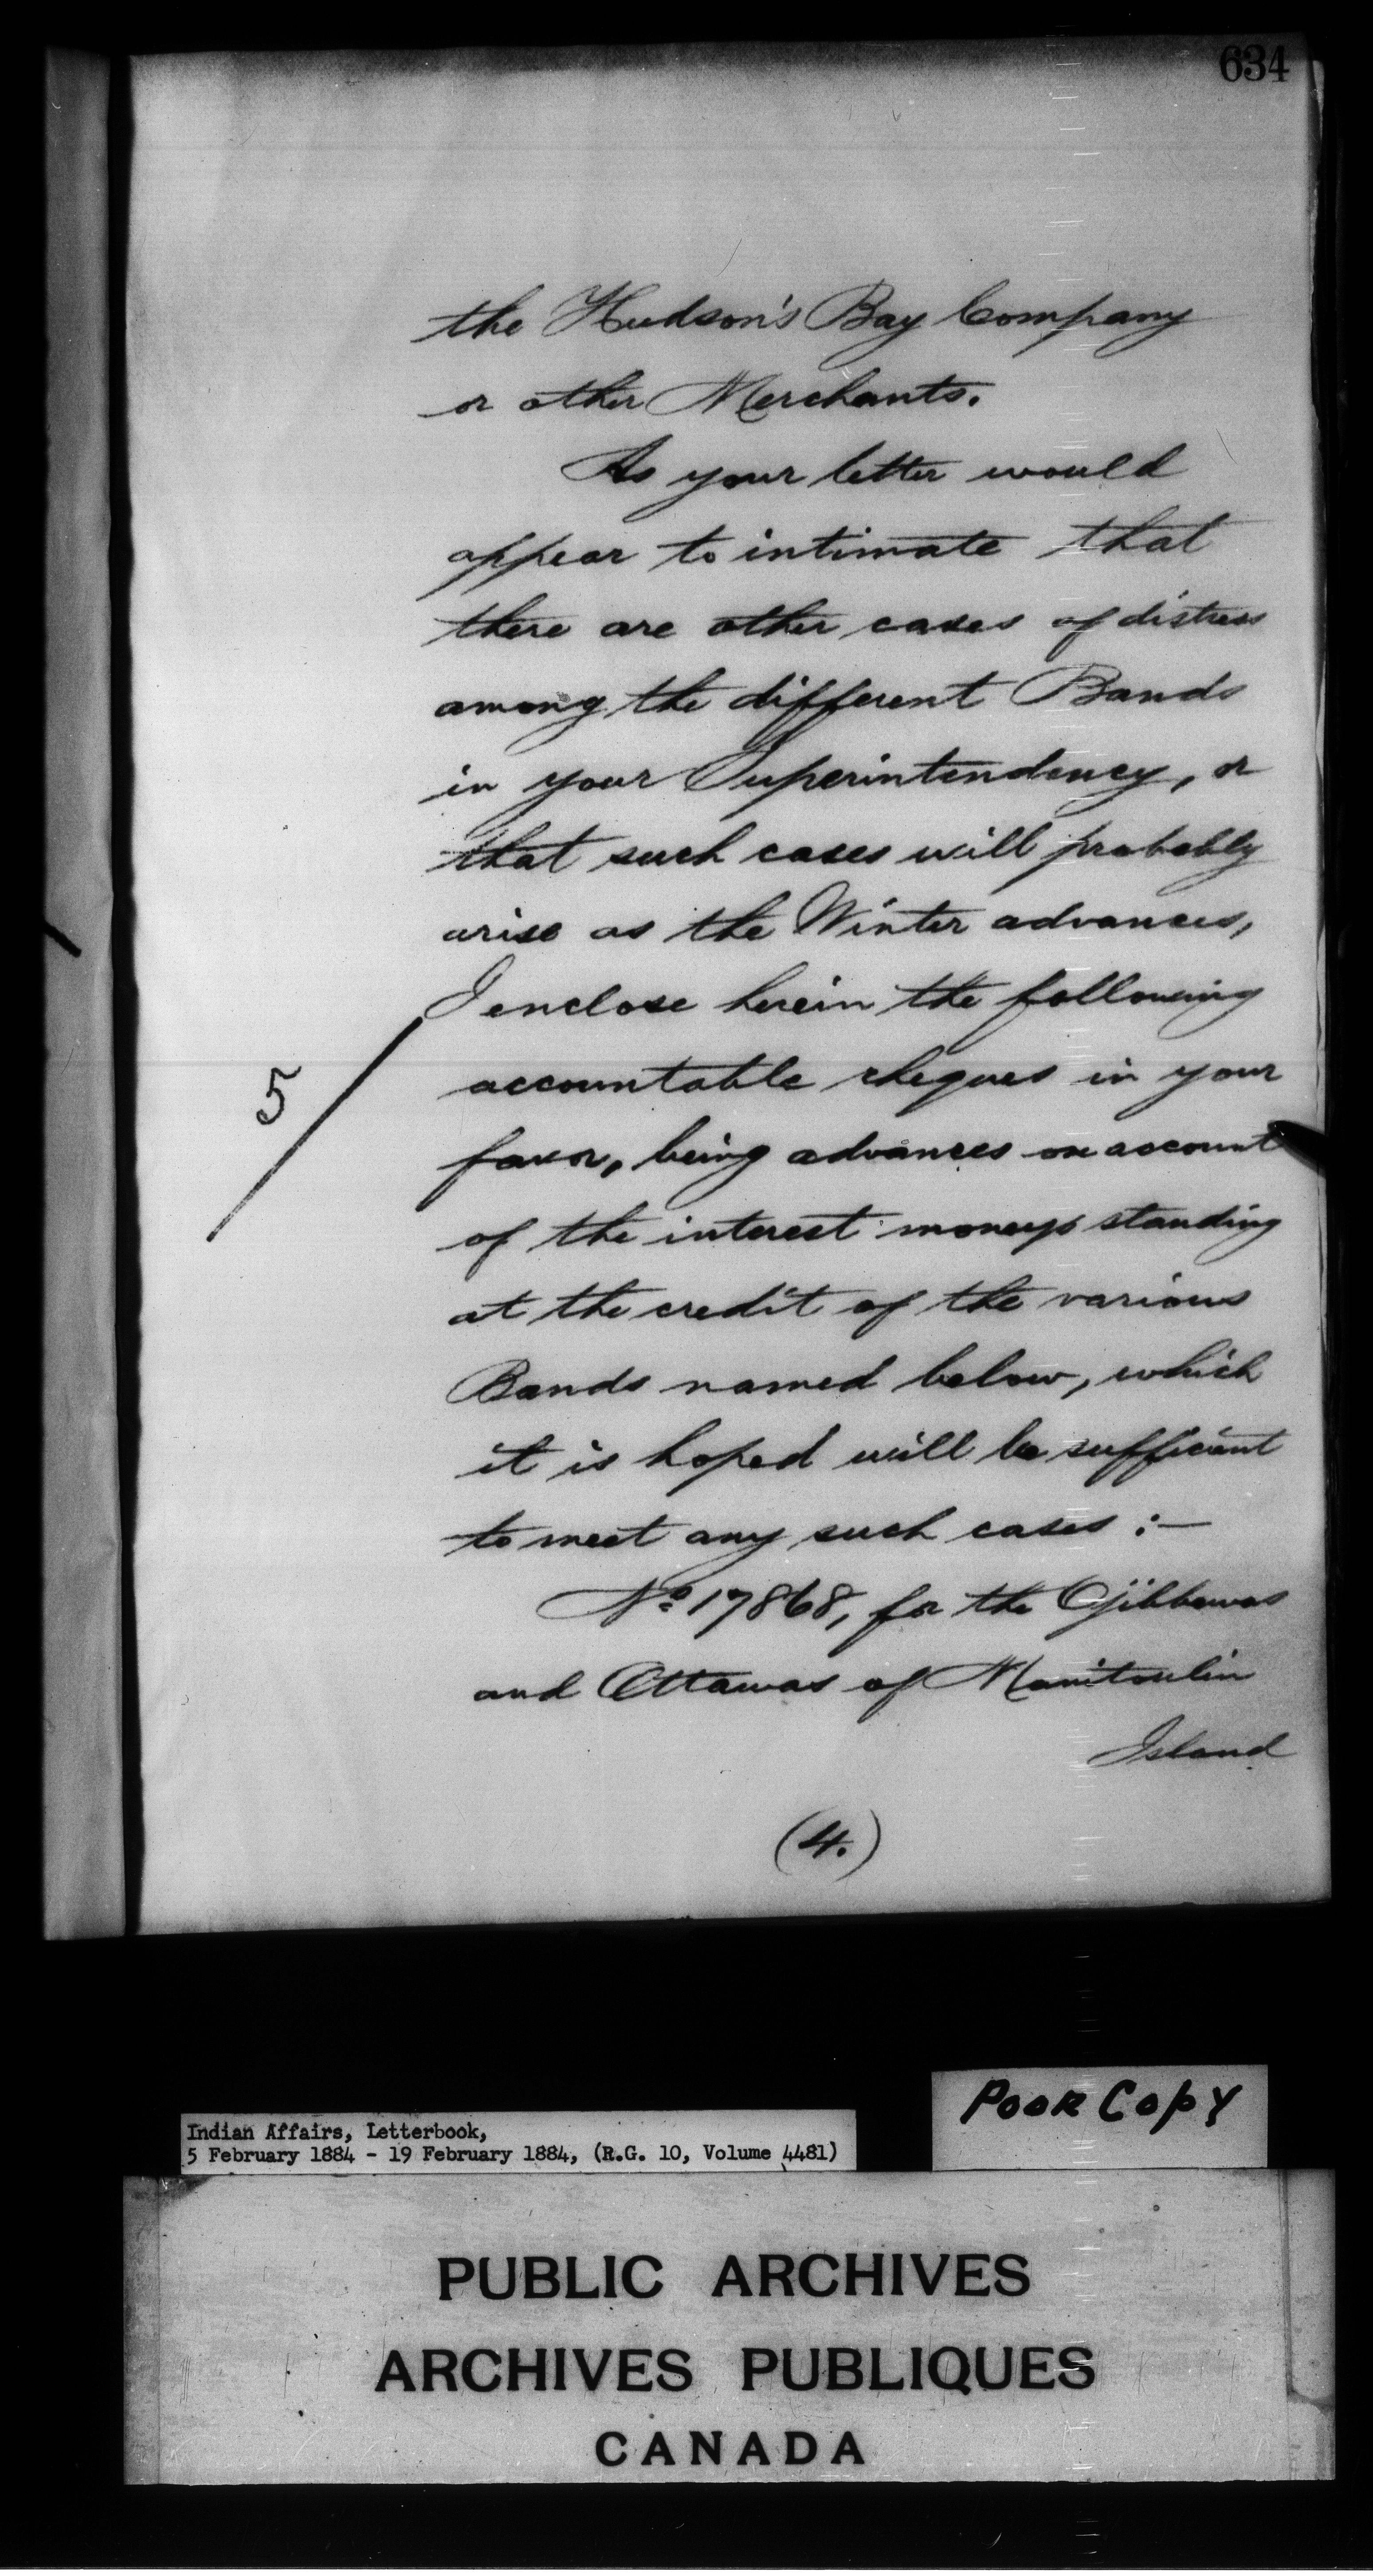 634
the Hudson's Bay Company
or other Merchants.
As your letter would
appear to intimate that
there are other cases of distress
among the different Bands
in your Superintendency, or
that such cases will probably
arise as the Winter advances,
I enclose herein the following
5
accountable cheques in your
favor, being advances on account
of the interest moneys standing
at the credit of the various
Bands named below, which
it is hoped will be sufficient
to meet any such cases :—
No. 17868, for the Ojibbewas
and Ottawas of Manitoulin
Island
(4.)
Poor Copy
Indian Affairs, Letterbook,
5 February 1884 - 19 February 1884, (R.G. 10, Volume 4481)
PUBLIC ARCHIVES
ARCHIVES PUBLIQUES
CANADA